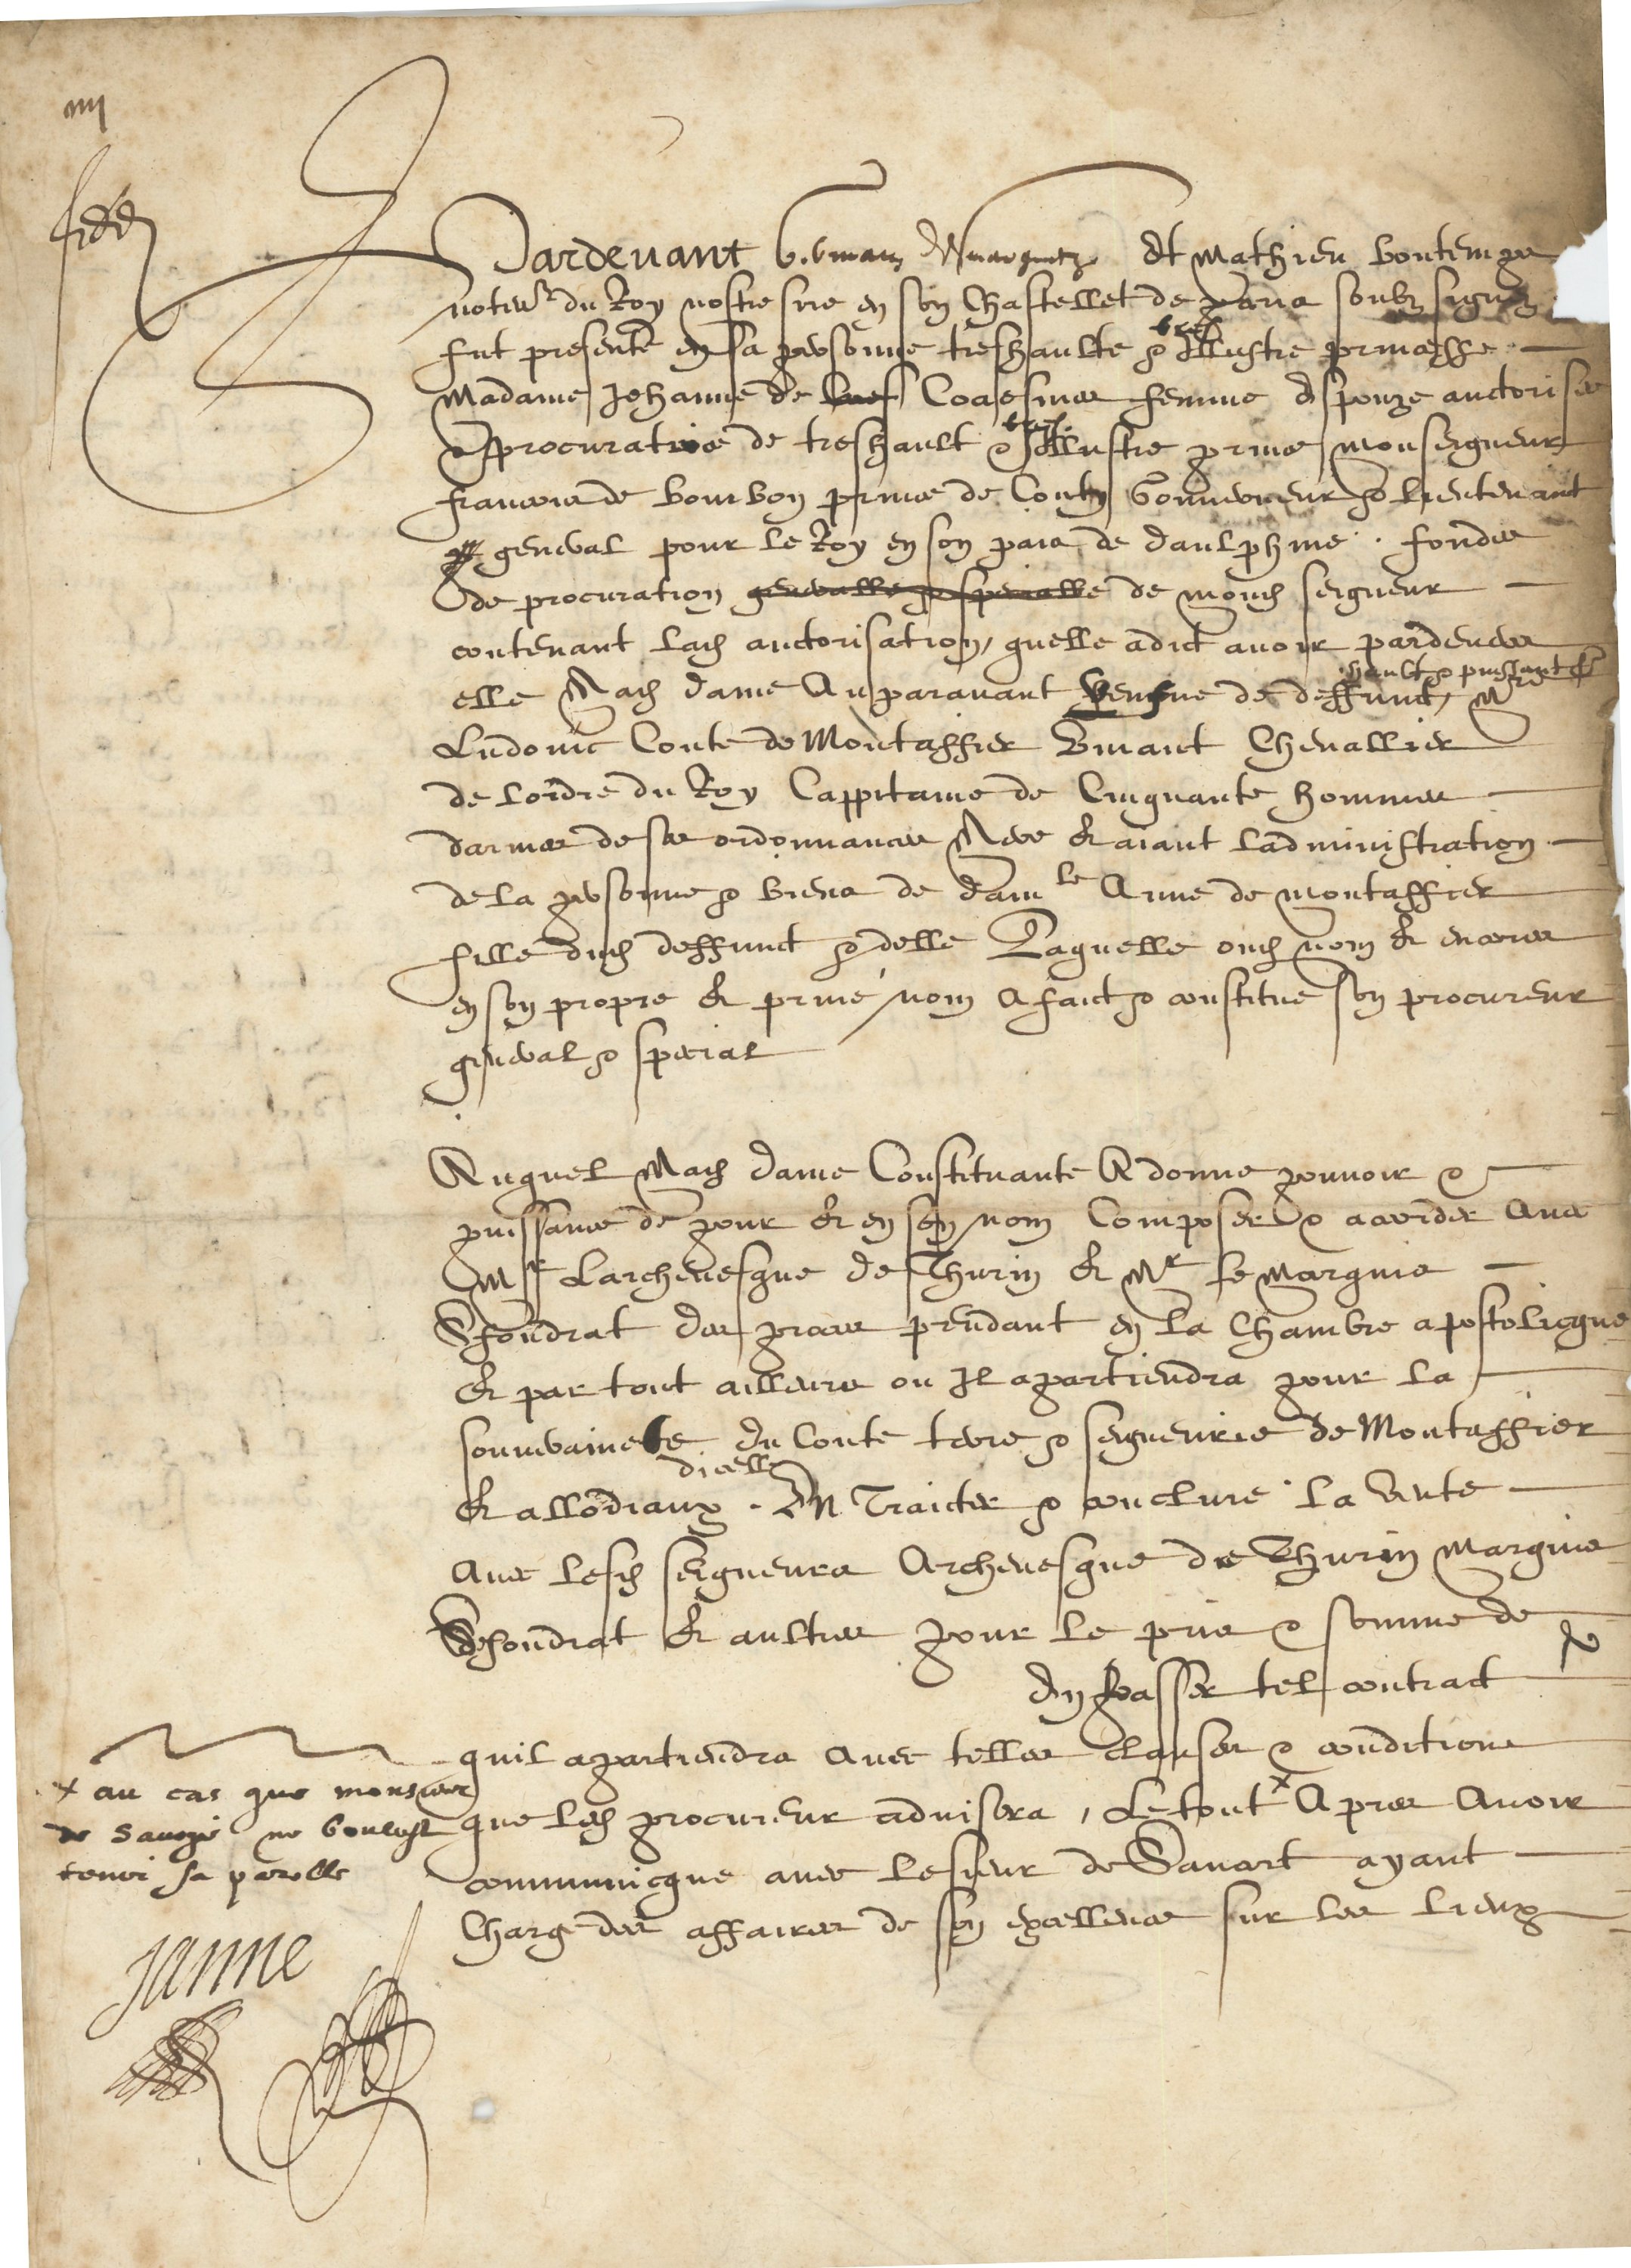 Pardevant et Mathieu Bontemps
notres du Roy nostre sire en son Chastellet de Paris soubzsignez
fut presente en sa personne treshaulte & tres Illustre princesse
Madame Jehanne de Coaesmes femme espouze auctorisee
& procuratrice de treshault & tres Illustre prince Monseigneur
francois de Bourbon prince de Conty Gouverneur & lieutenant
general pour le Roy en son pais de daulphine . fondee
de procuration generalle & specialle de mond seigneur
contenant lad auctorisation, quelle a dict avoir pardevers
elle Mad dame Auparavant veufve de deffunct, hault & puissant sr Mre
Ludovic Conte de Montaffier vivant Chevallier
de lordre du Roy Cappitaine de Cinquante hommes
darmes de ses ordonnances Mere & aiant ladministration
de la personne & biens de damle Anne de Montaffier
fille dud deffunct & delle Laquelle oud nom & encores
en son propre & prive nom A faict & constitue son procureur
general & special
Auquel Mad dame Constituante A donne pouvoir &
puissance de pour & en son nom Composer & accorder avec
Mr Larchevesque de Thurin & Mr le Marquis
Sfondrat des proces pendant en la Chambre apostolicque
& par tout ailleurs ou Il apartiendra pour la
souverainete du Conte terre & seigneurie de Montaffier
& allodiaux . dicelle En Traicter & conclure la vente
avec lesd seigneurs Archevesque de Thurin Marquis
Sfondrat & aultres pour le pris & somme de
En passer tel contract
quil apartiendra avec telles clauses & conditions
que led procureur advisera , Le tout x Apres avoir
communicque avec le sieur de Savart ayant
Charge des affaires de son excellence sur les lieux
x au cas que monsieur
de Savoye ne voulust
tenir sa parolle
Janne